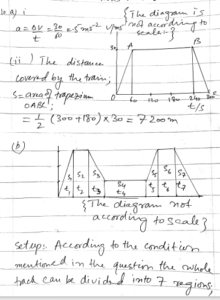 (a) i
a = ΔV/t = 30/60 = .5 ms⁻²
{The diagram is
not according to
scale}
V/ms⁻¹
A B
(ii) The distance
covered by the train,
S = area of trapezium
OABC
0 60 120 180 240 300
t/s
= 1/2 (300 + 180) × 30 = 7200m
(b)
S₁ S₂ S₃ S₄ S₅ S₆ S₇
t₁ t₂ t₃ t₄ t₅ t₆ t₇
{The diagram not
according to scale}
setup: According to the condition
mentioned in the question the whole
track can be divided into 7 regions,